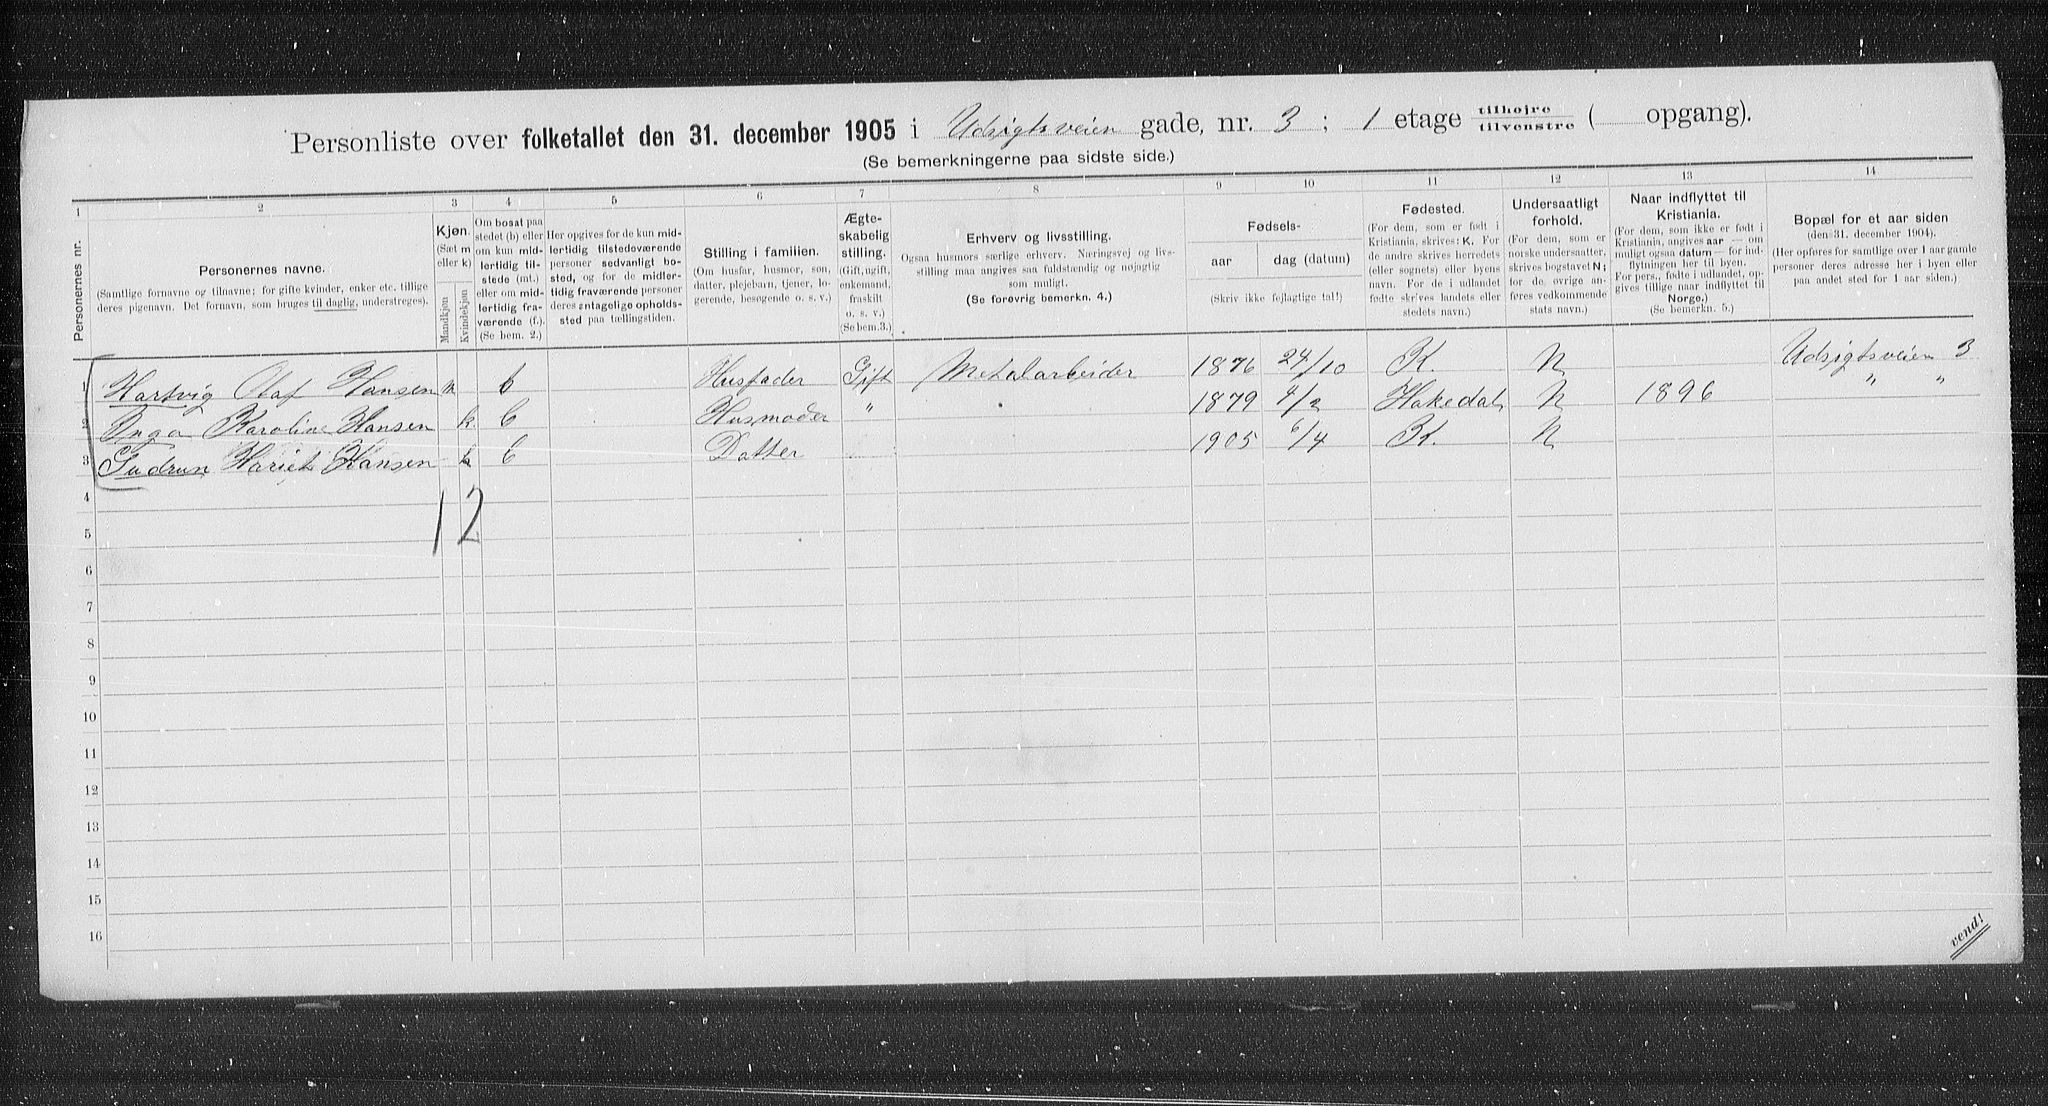 Personliste over folketallet den 31. december 1905 i Udsigtsveien gade, nr. 3 ; 1 etage tilhøjre / tilvenstre ( opgang).
(Se bemerkningerne paa sidste side.)
1 2 3 4 5 6 7 8 9 10 11 12 13 14
Personernes nr.
Personernes navne.
(Samtlige fornavne og tilnavne; for gifte kvinder, enker etc. tillige
deres pigenavn. Det fornavn, som bruges til daglig, understreges).
Kjøn.
(Sæt m
eller k)
Mandkjøn
Kvindekjøn
Om bosat paa
stedet (b) eller
om kun mid-
lertidig til-
stede (mt.)
eller om mid-
lertidig fra-
værende (f.).
(Se bem. 2.)
Her opgives for de kun mid-
lertidig tilstedeværende
personer sedvanligt bo-
sted, og for de midler-
tidig fraværende personer
deres antagelige opholds-
sted paa tællingstiden.
Stilling i familien.
(Om husfar, husmor, søn,
datter, plejebarn, tjener, lo-
gerende, besøgende o. s. v.)
Ægte-
skabelig
stilling.
(Gift, ugift,
enkemand,
fraskilt
o. s. v.)
(Se bem. 3.)
Erhverv og livsstilling.
Ogsaa husmors særlige erhverv. Næringsvej og livs-
stilling maa angives saa fuldstændig og nøjagtig
som muligt.
(Se forøvrig bemerkn. 4.)
Fødsels-
aar
dag (datum)
(Skriv ikke fejlagtige tal!)
Fødested.
(For dem, som er født i
Kristiania, skrives: K. For
de andre skrives herredets
(eller sognets) eller byens
navn. For de i udlandet
fødte skrives landets eller
stedets navn.)
Undersaatligt
forhold.
(For dem, som er
norske undersaatter,
skrives bogstavet N;
for de øvrige an-
føres vedkommende
stats navn.)
Naar indflyttet til
Kristiania.
(For dem, som ikke er født i
Kristiania, angives aar — om
muligt ogsaa datum — for ind-
flytningen her til byen.
For pers., fødte i udlandet, op-
gives tillige naar indflyttet til
Norge.)
(Se bemerkn. 5.)
Bopæl for et aar siden
(den 31. december 1904).
(Her opføres for samtlige over 1 aar gamle
personer deres adresse her i byen eller
paa andet sted for 1 aar siden.)
1 Hartvig Olaf Hansen m b Husfader Gift Metalarbeider 1876 24/10 K. N Udsigtsveien 3
2 Inga Karoline Hansen k b Husmoder " 1879 4/2 Hakedal N 1896 " "
3 Gudrun Hariet Hansen k b Datter 1905 6/4 K. N
4
12
5
6
7
8
9
10
11
12
13
14
15
16
vend!